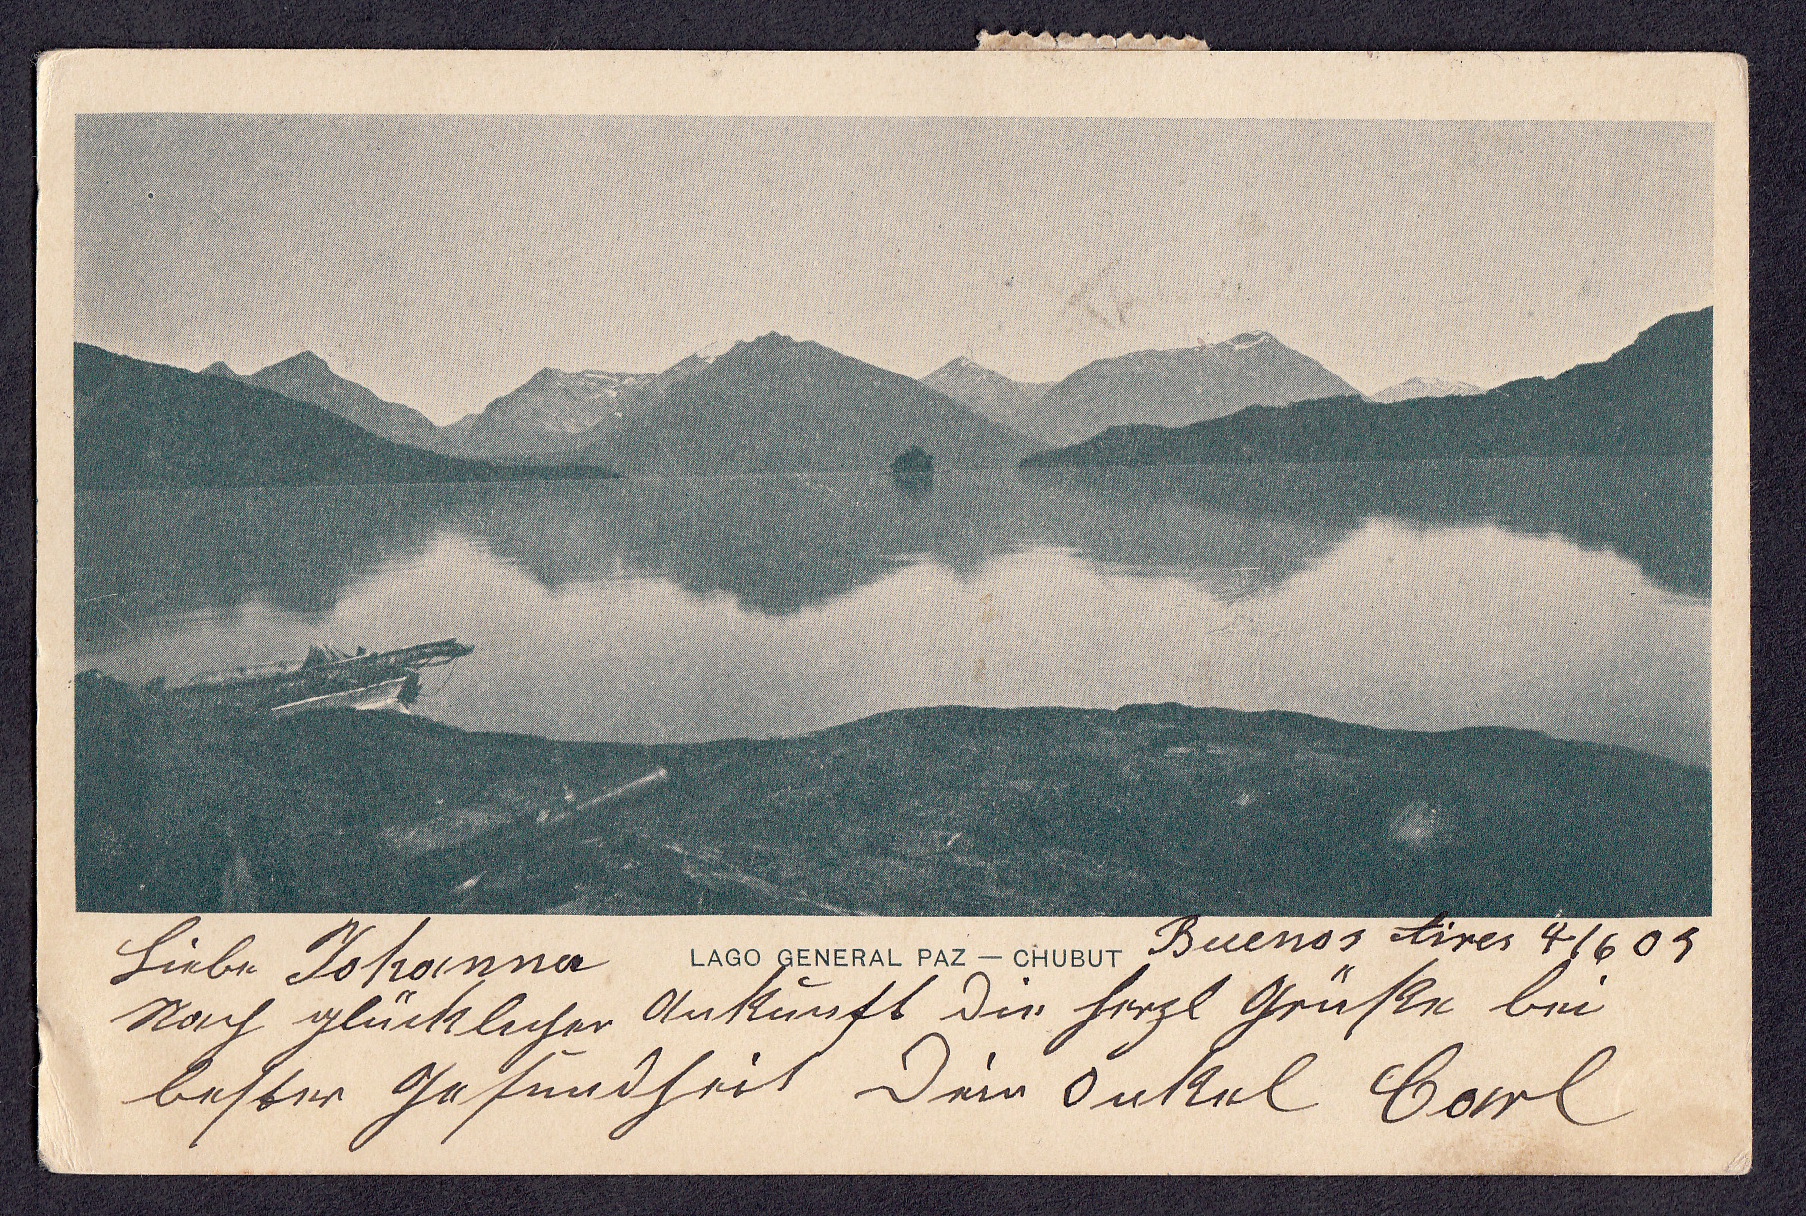 Liebe Johanna
LAGO GENERAL PAZ — CHUBUT
Buenos Aires 4/6 09
Nach glücklicher Ankunft die herzl Grüße bei
bester Gesundheit Dein Onkel Carl